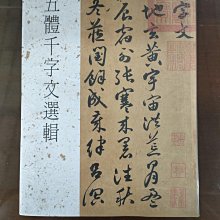 字文
地玄黃宇宙洪荒日月盈
辰宿列張寒來暑往秋
冬藏閏餘成歲律呂調
五體千字文選輯